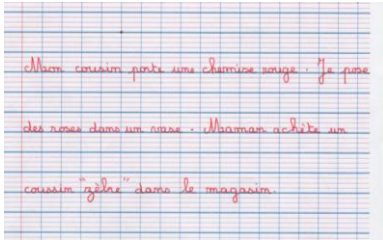 Mon cousin porte une chemise rouge. Je pose
des roses dans un vase. Maman achète un
coussin "zèbre" dans le magasin.